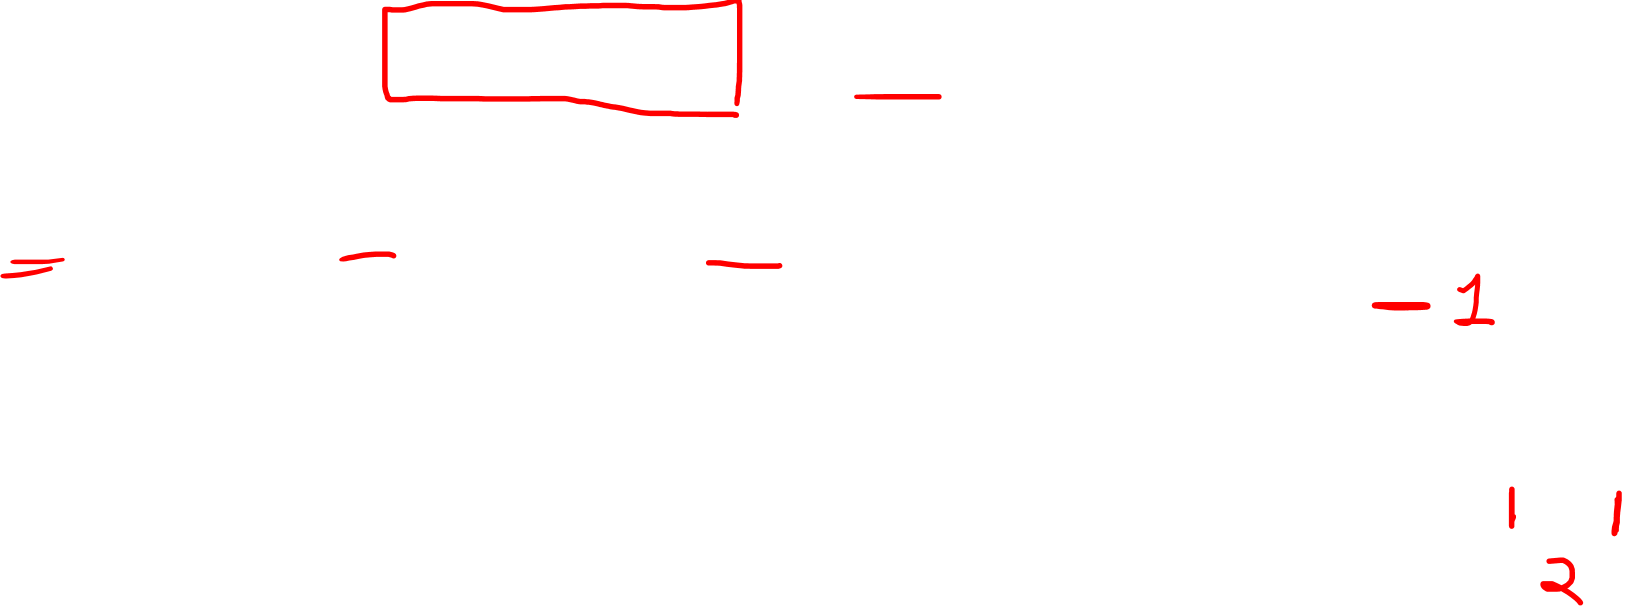 —
= — — — 1
| |
2